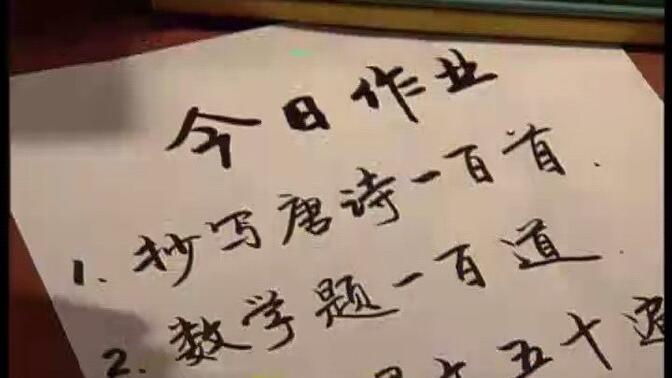 今日作业
1. 抄写唐诗一百首.
2. 数学题一百道.
五十遍